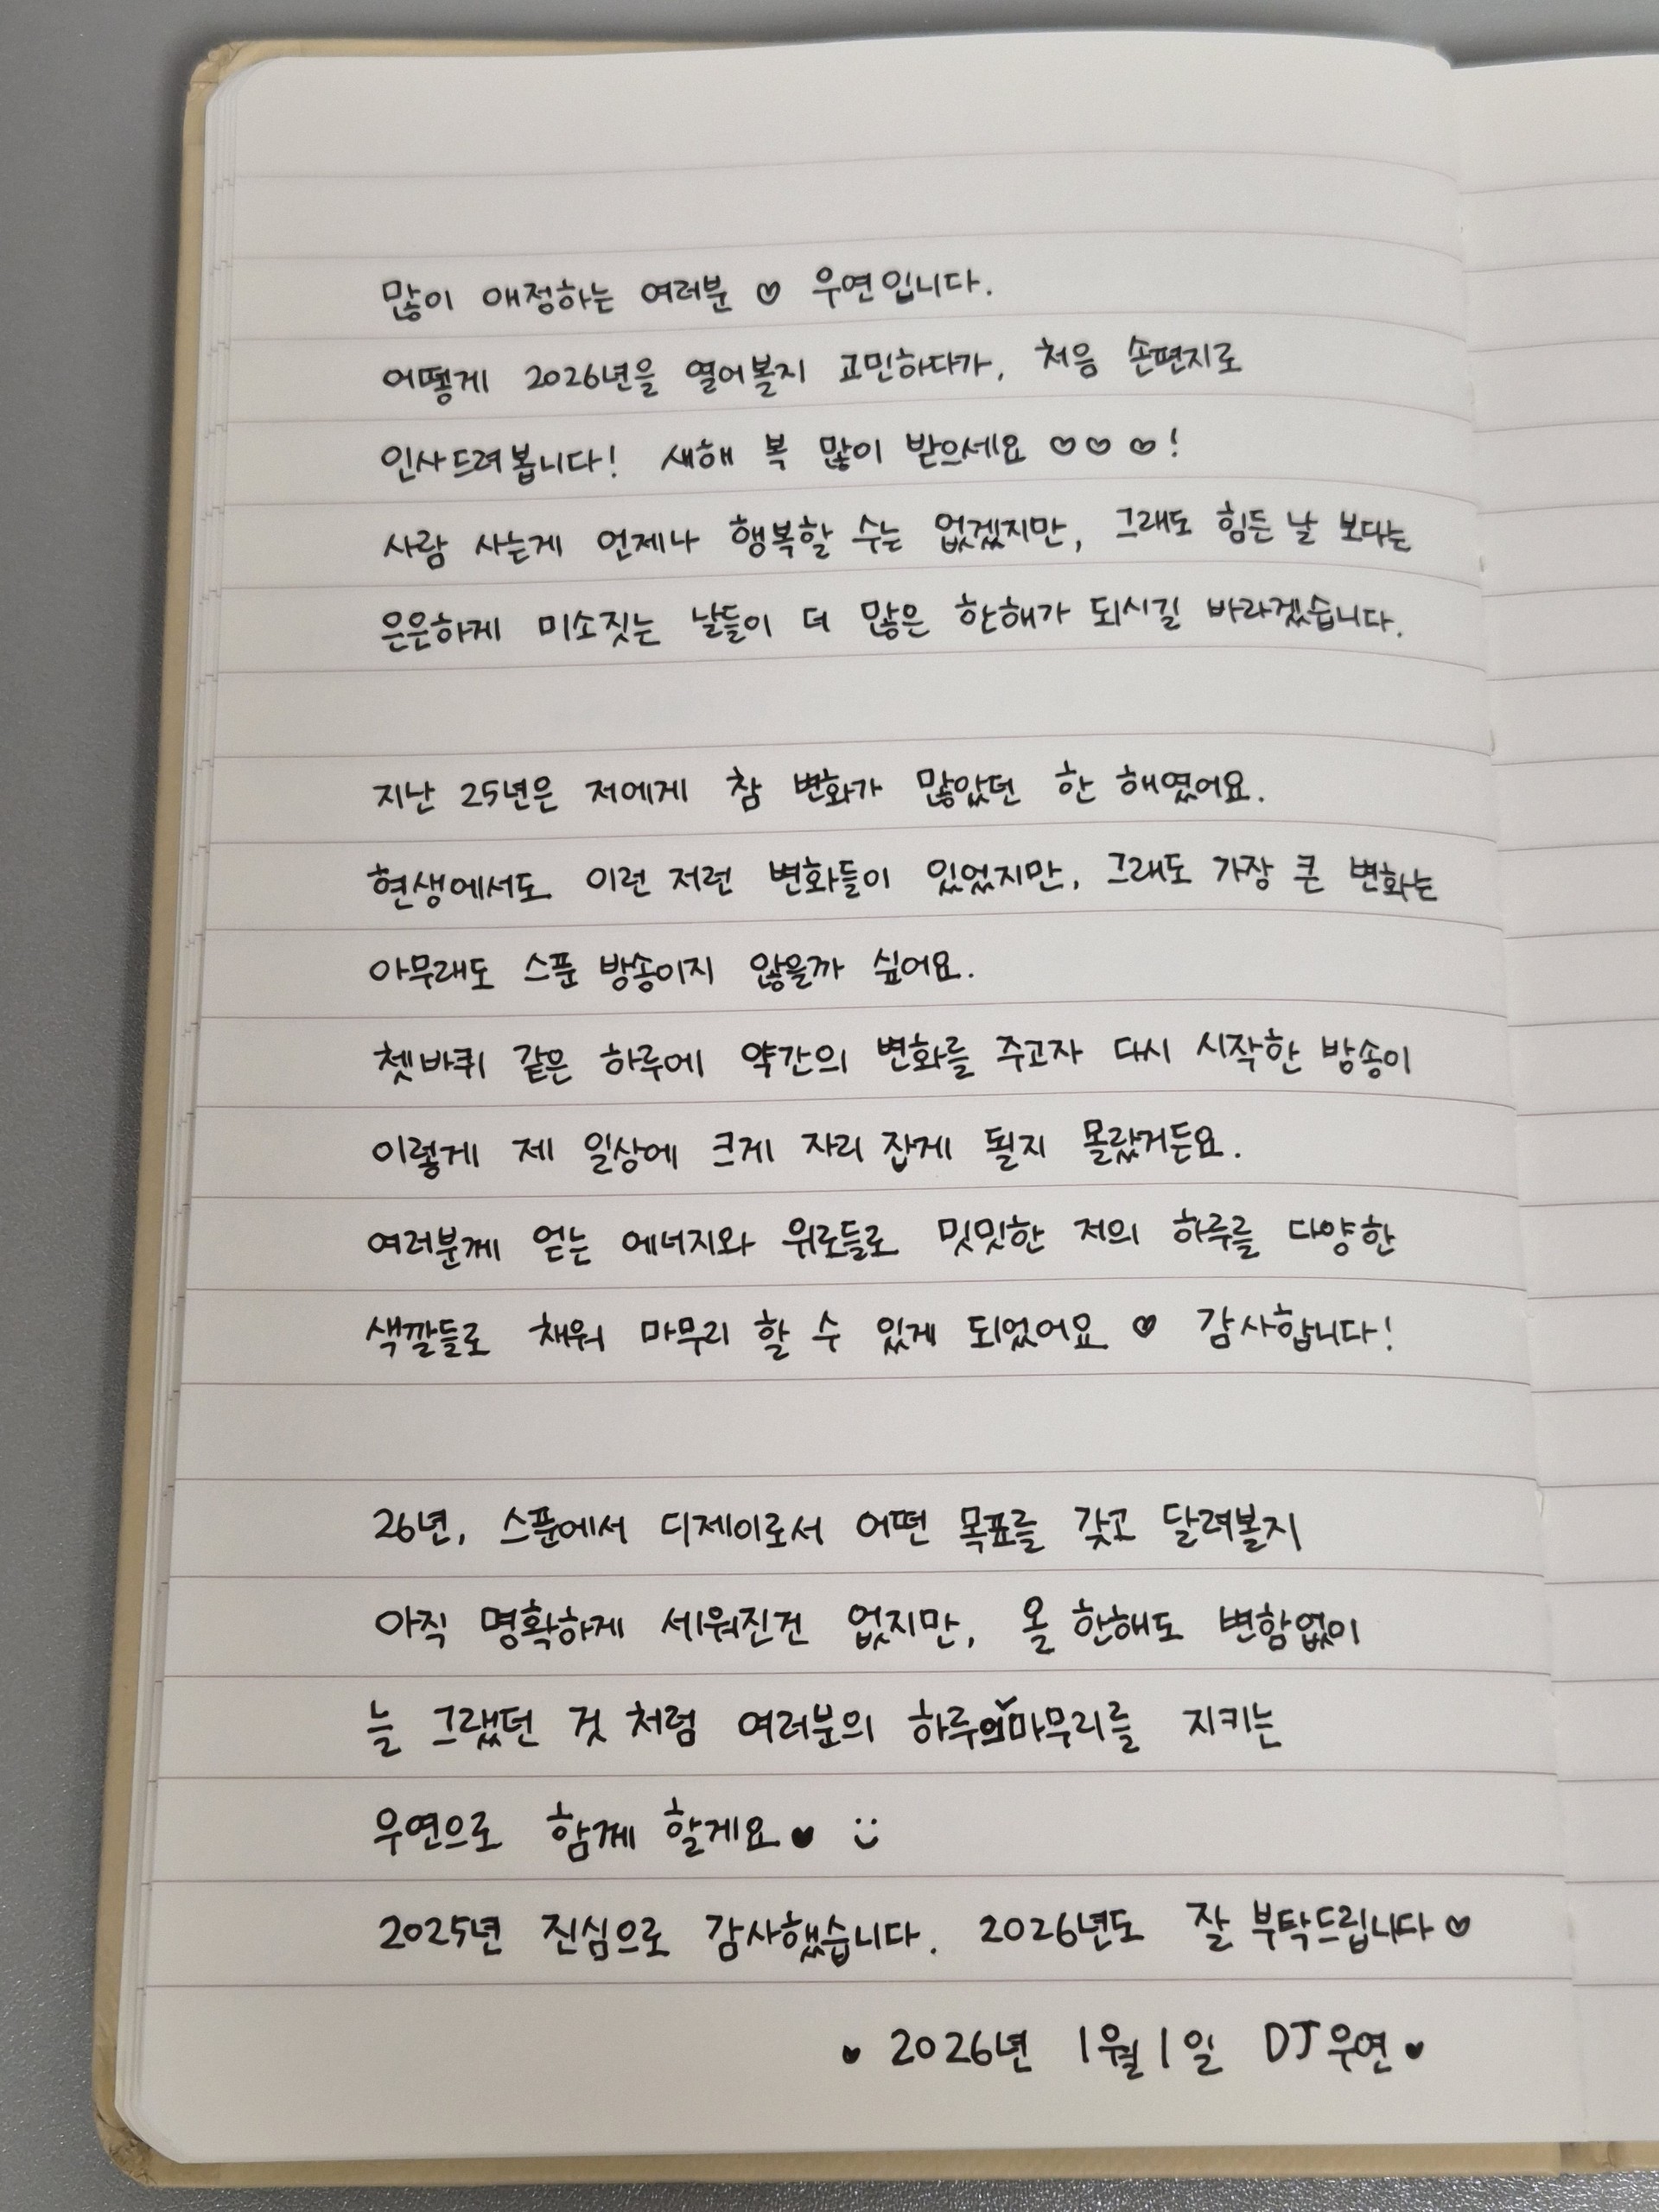 많이 애정하는 여러분 ♡ 우연입니다.
어떻게 2026년을 열어볼지 고민하다가, 처음 손편지로
인사드려봅니다! 새해 복 많이 받으세요 ♡♡♡!
사람 사는게 언제나 행복할 수는 없겠지만, 그래도 힘든 날 보다는
은은하게 미소짓는 날들이 더 많은 한해가 되시길 바라겠습니다.
지난 25년은 저에게 참 변화가 많았던 한 해였어요.
현생에서도 이런 저런 변화들이 있었지만, 그래도 가장 큰 변화는
아무래도 스푼 방송이지 않을까 싶어요.
쳇바퀴 같은 하루에 약간의 변화를 주고자 다시 시작한 방송이
이렇게 제 일상에 크게 자리 잡게 될지 몰랐거든요.
여러분께 얻는 에너지와 위로들로 밋밋한 저의 하루를 다양한
색깔들로 채워 마무리 할 수 있게 되었어요 ♡ 감사합니다!
26년, 스푼에서 디제이로서 어떤 목표를 갖고 달려볼지
아직 명확하게 세워진건 없지만, 올 한해도 변함없이
늘 그랬던 것 처럼 여러분의 하루의✓마무리를 지키는
우연으로 함께 할게요♥ :)
2025년 진심으로 감사했습니다. 2026년도 잘 부탁드립니다♡
♥ 2026년 1월 1일 DJ우연♥